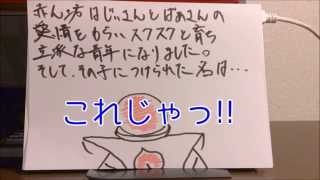 赤ん坊はじいさんとばあさんの
愛情をもらいスクスクと育ち
立派な青年になりました。
そして、その子につけられた名は…
これじゃっ!!